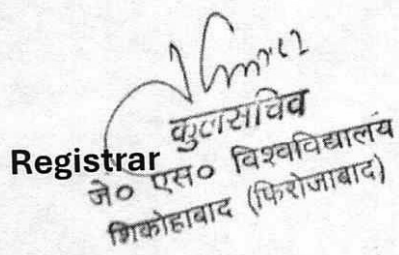 कुलसचिव
Registrar
जे० एस० विश्वविद्यालय
शिकोहाबाद (फिरोजाबाद)